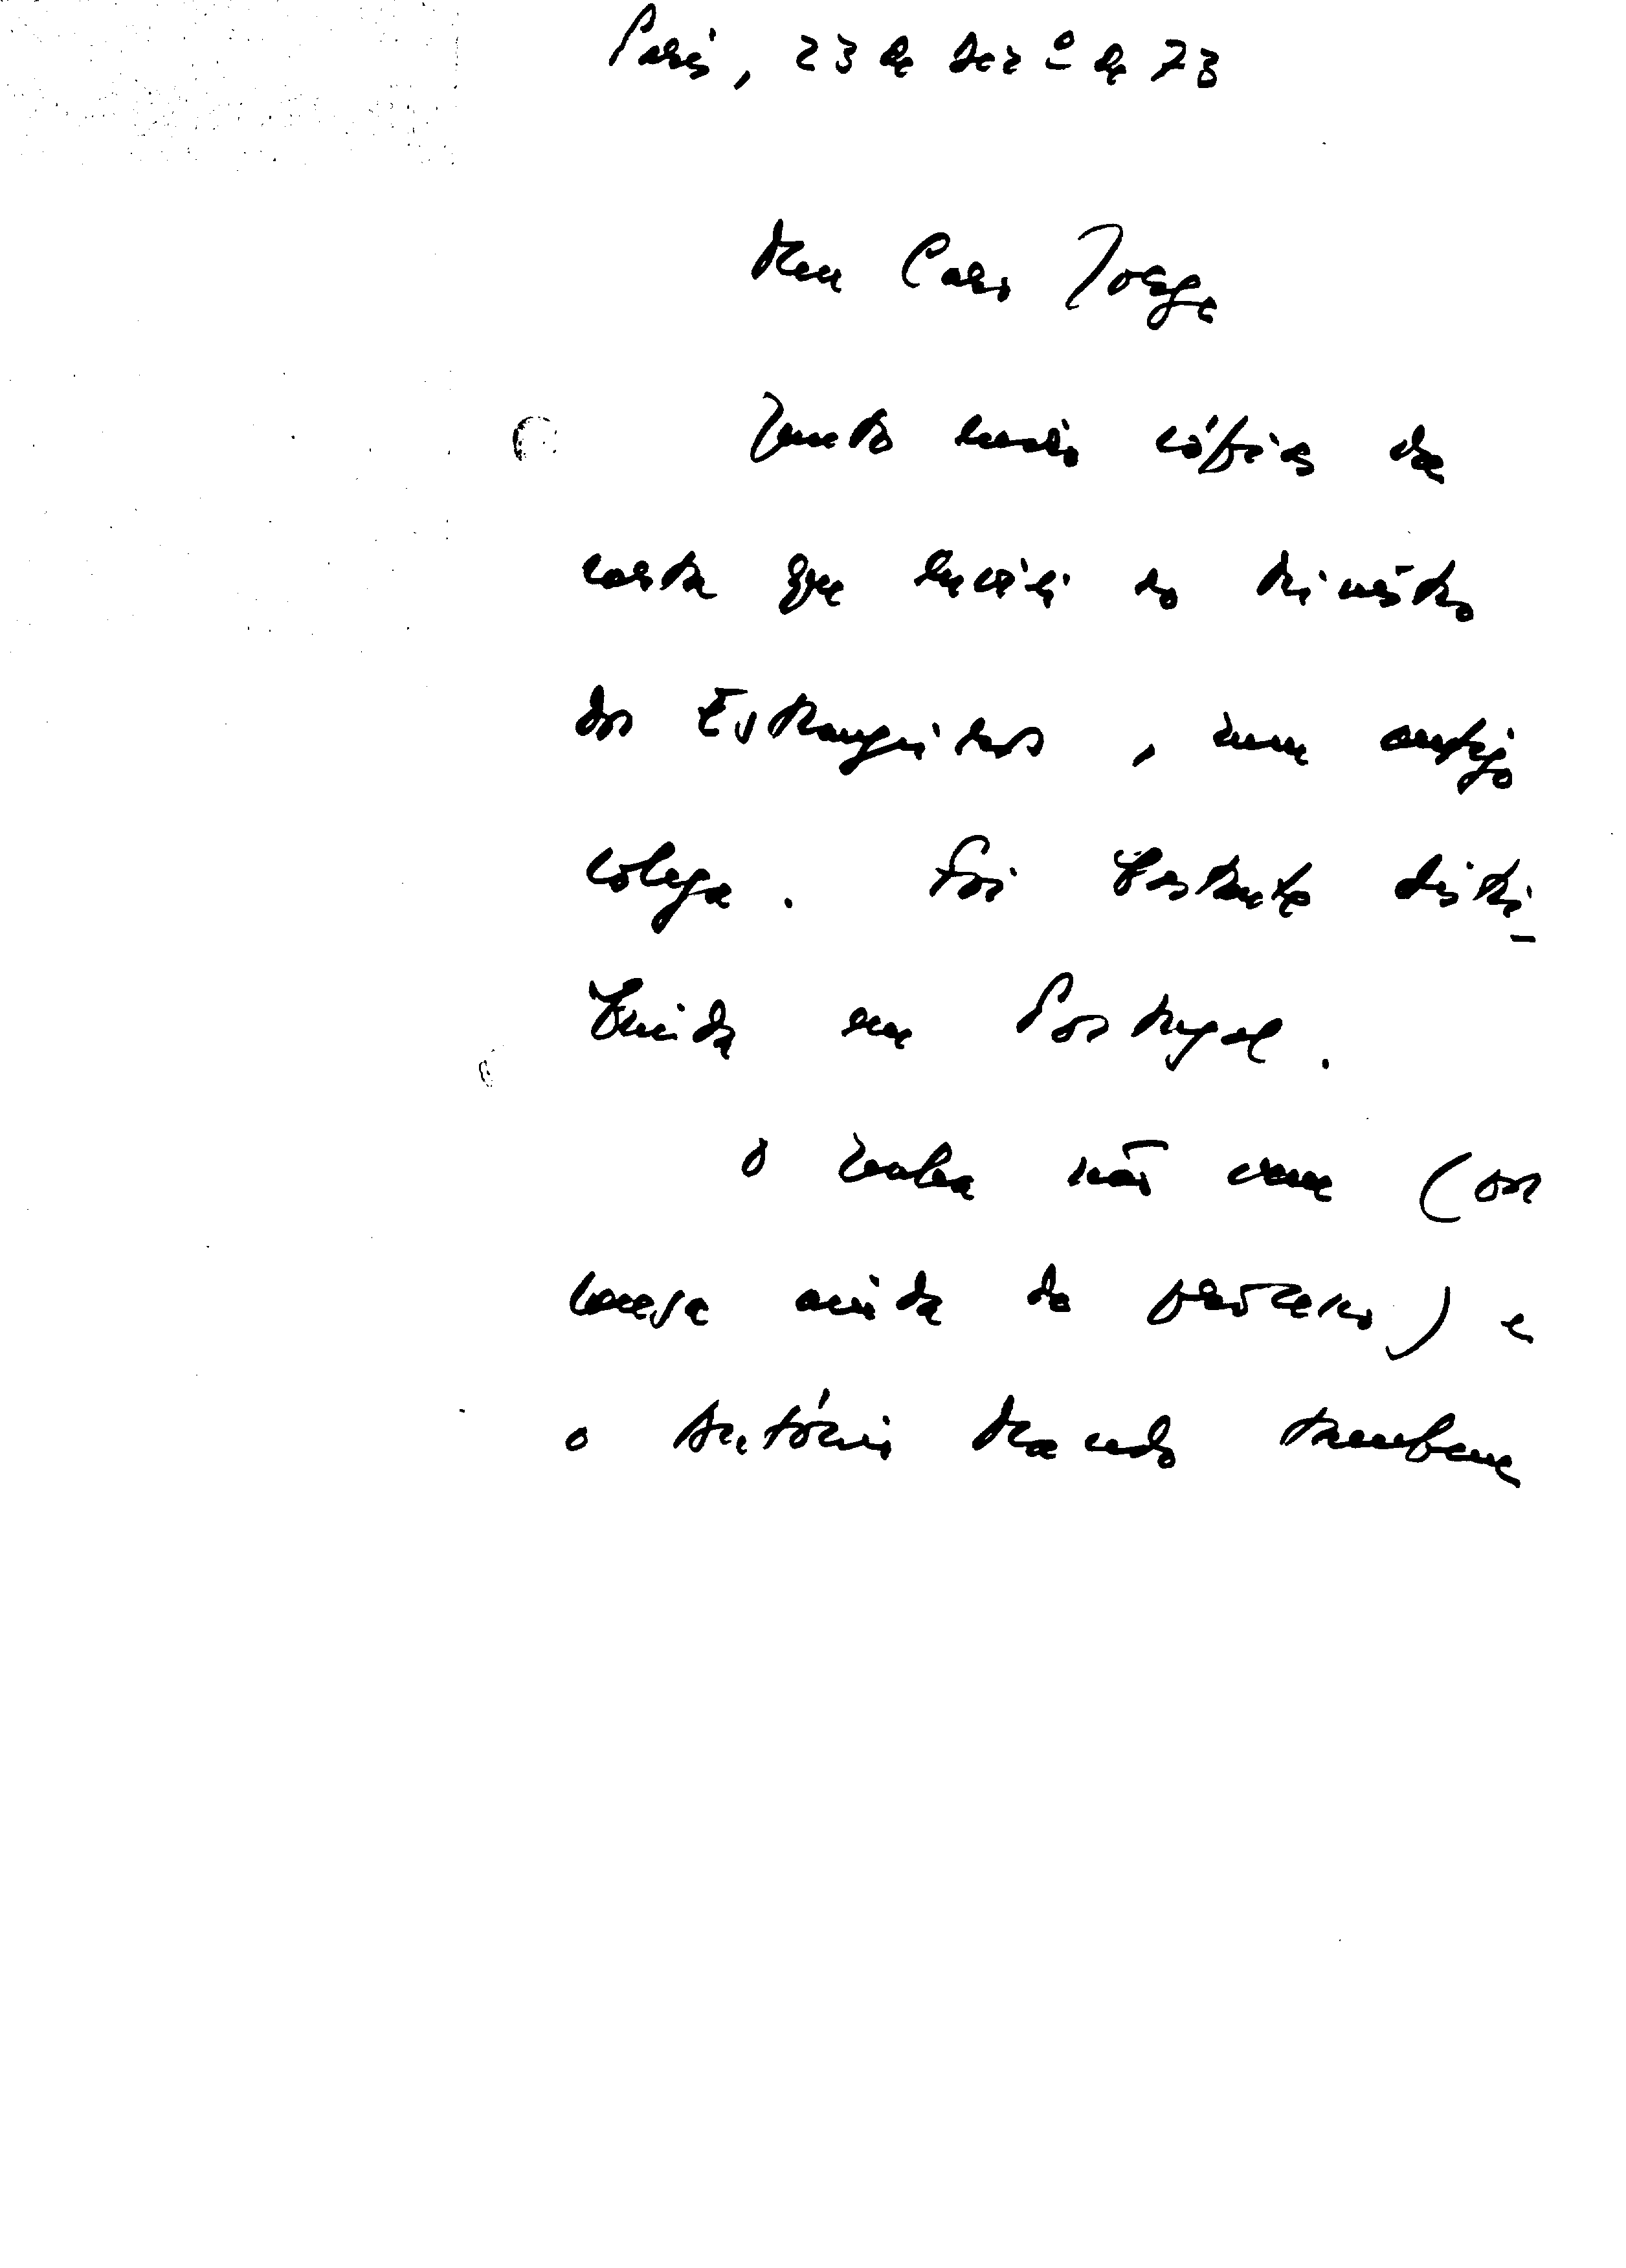 Paris, 23 de Dezº de 73
Meu Caro Jorge
Junto envio cópias da
carta que enviei ao Ministro
dos Estrangeiros, meu antigo
colega. Foi bastante distri-
buida em Portugal.
O Zenha não vem (por
causa ainda do processo) e
o António Macedo também